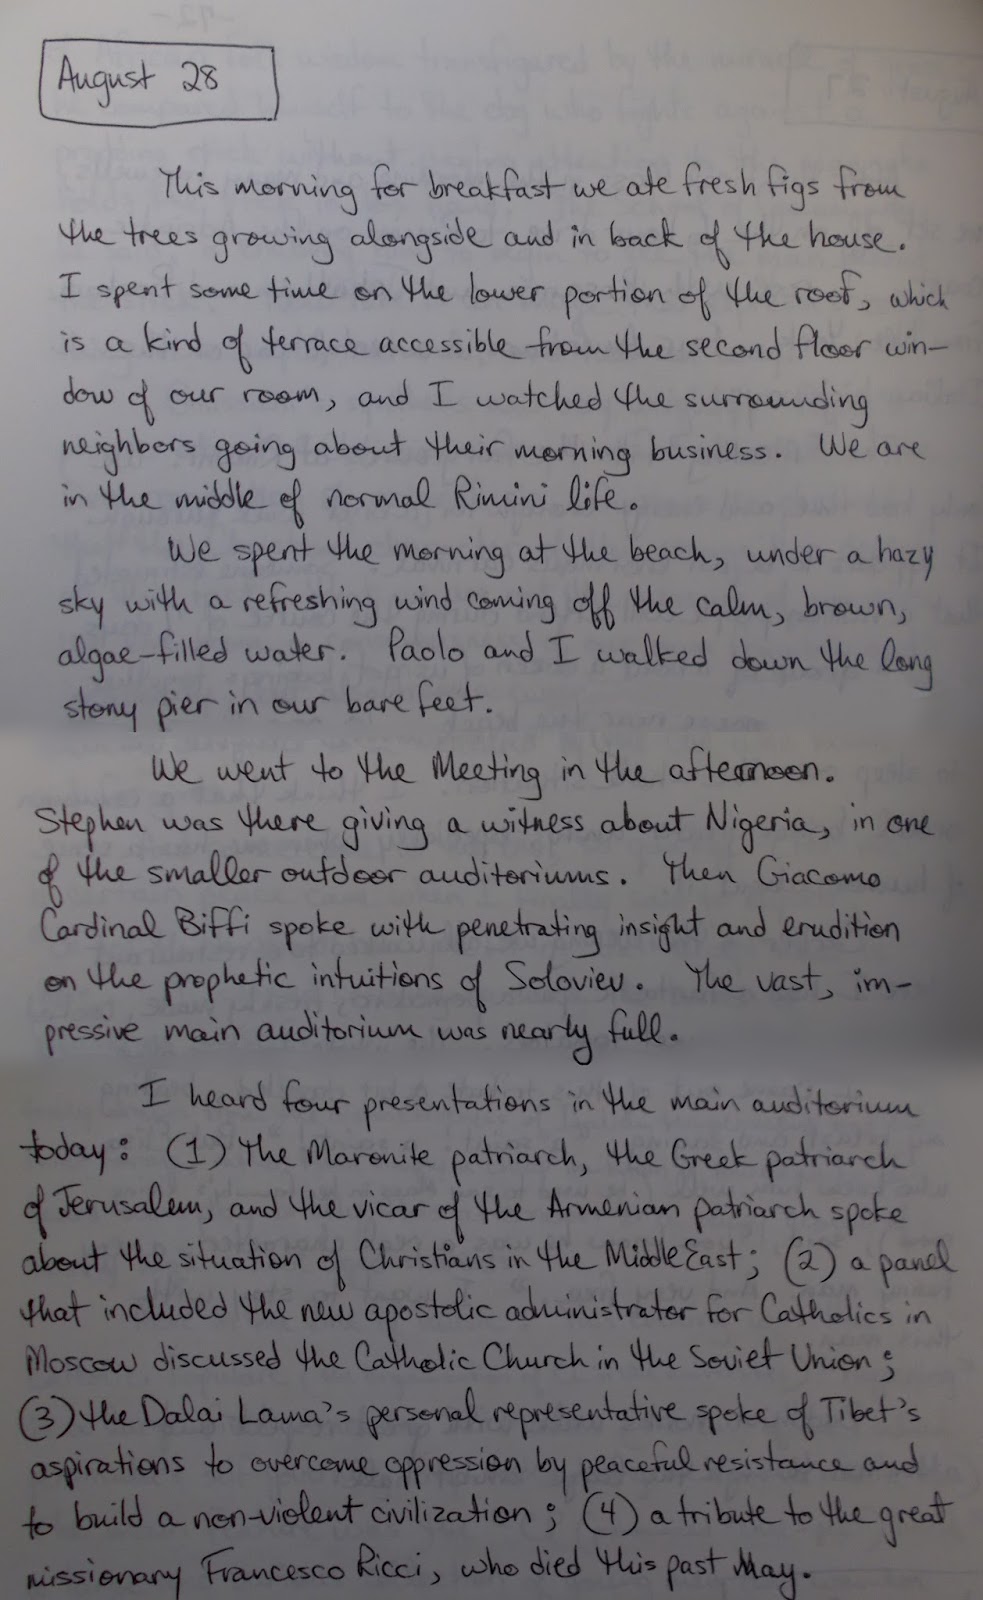 August 28
This morning for breakfast we ate fresh figs from
the trees growing alongside and in back of the house.
I spent some time on the lower portion of the roof, which
is a kind of terrace accessible from the second floor win-
dow of our room, and I watched the surrounding
neighbors going about their morning business. We are
in the middle of normal Rimini life.
We spent the morning at the beach, under a hazy
sky with a refreshing wind coming off the calm, brown,
algae-filled water. Paolo and I walked down the long
stony pier in our bare feet.
We went to the Meeting in the afternoon.
Stephen was there giving a witness about Nigeria, in one
of the smaller outdoor auditoriums. Then Giacomo
Cardinal Biffi spoke with penetrating insight and erudition
on the prophetic intuitions of Soloviev. The vast, im-
pressive main auditorium was nearly full.
I heard four presentations in the main auditorium
today: (1) the Maronite patriarch, the Greek patriarch
of Jerusalem, and the vicar of the Armenian patriarch spoke
about the situation of Christians in the Middle East; (2) a panel
that included the new apostolic administrator for Catholics in
Moscow discussed the Catholic Church in the Soviet Union;
(3) the Dalai Lama's personal representative spoke of Tibet's
aspirations to overcome oppression by peaceful resistance and
to build a non-violent civilization; (4) a tribute to the great
missionary Francesco Ricci, who died this past May.